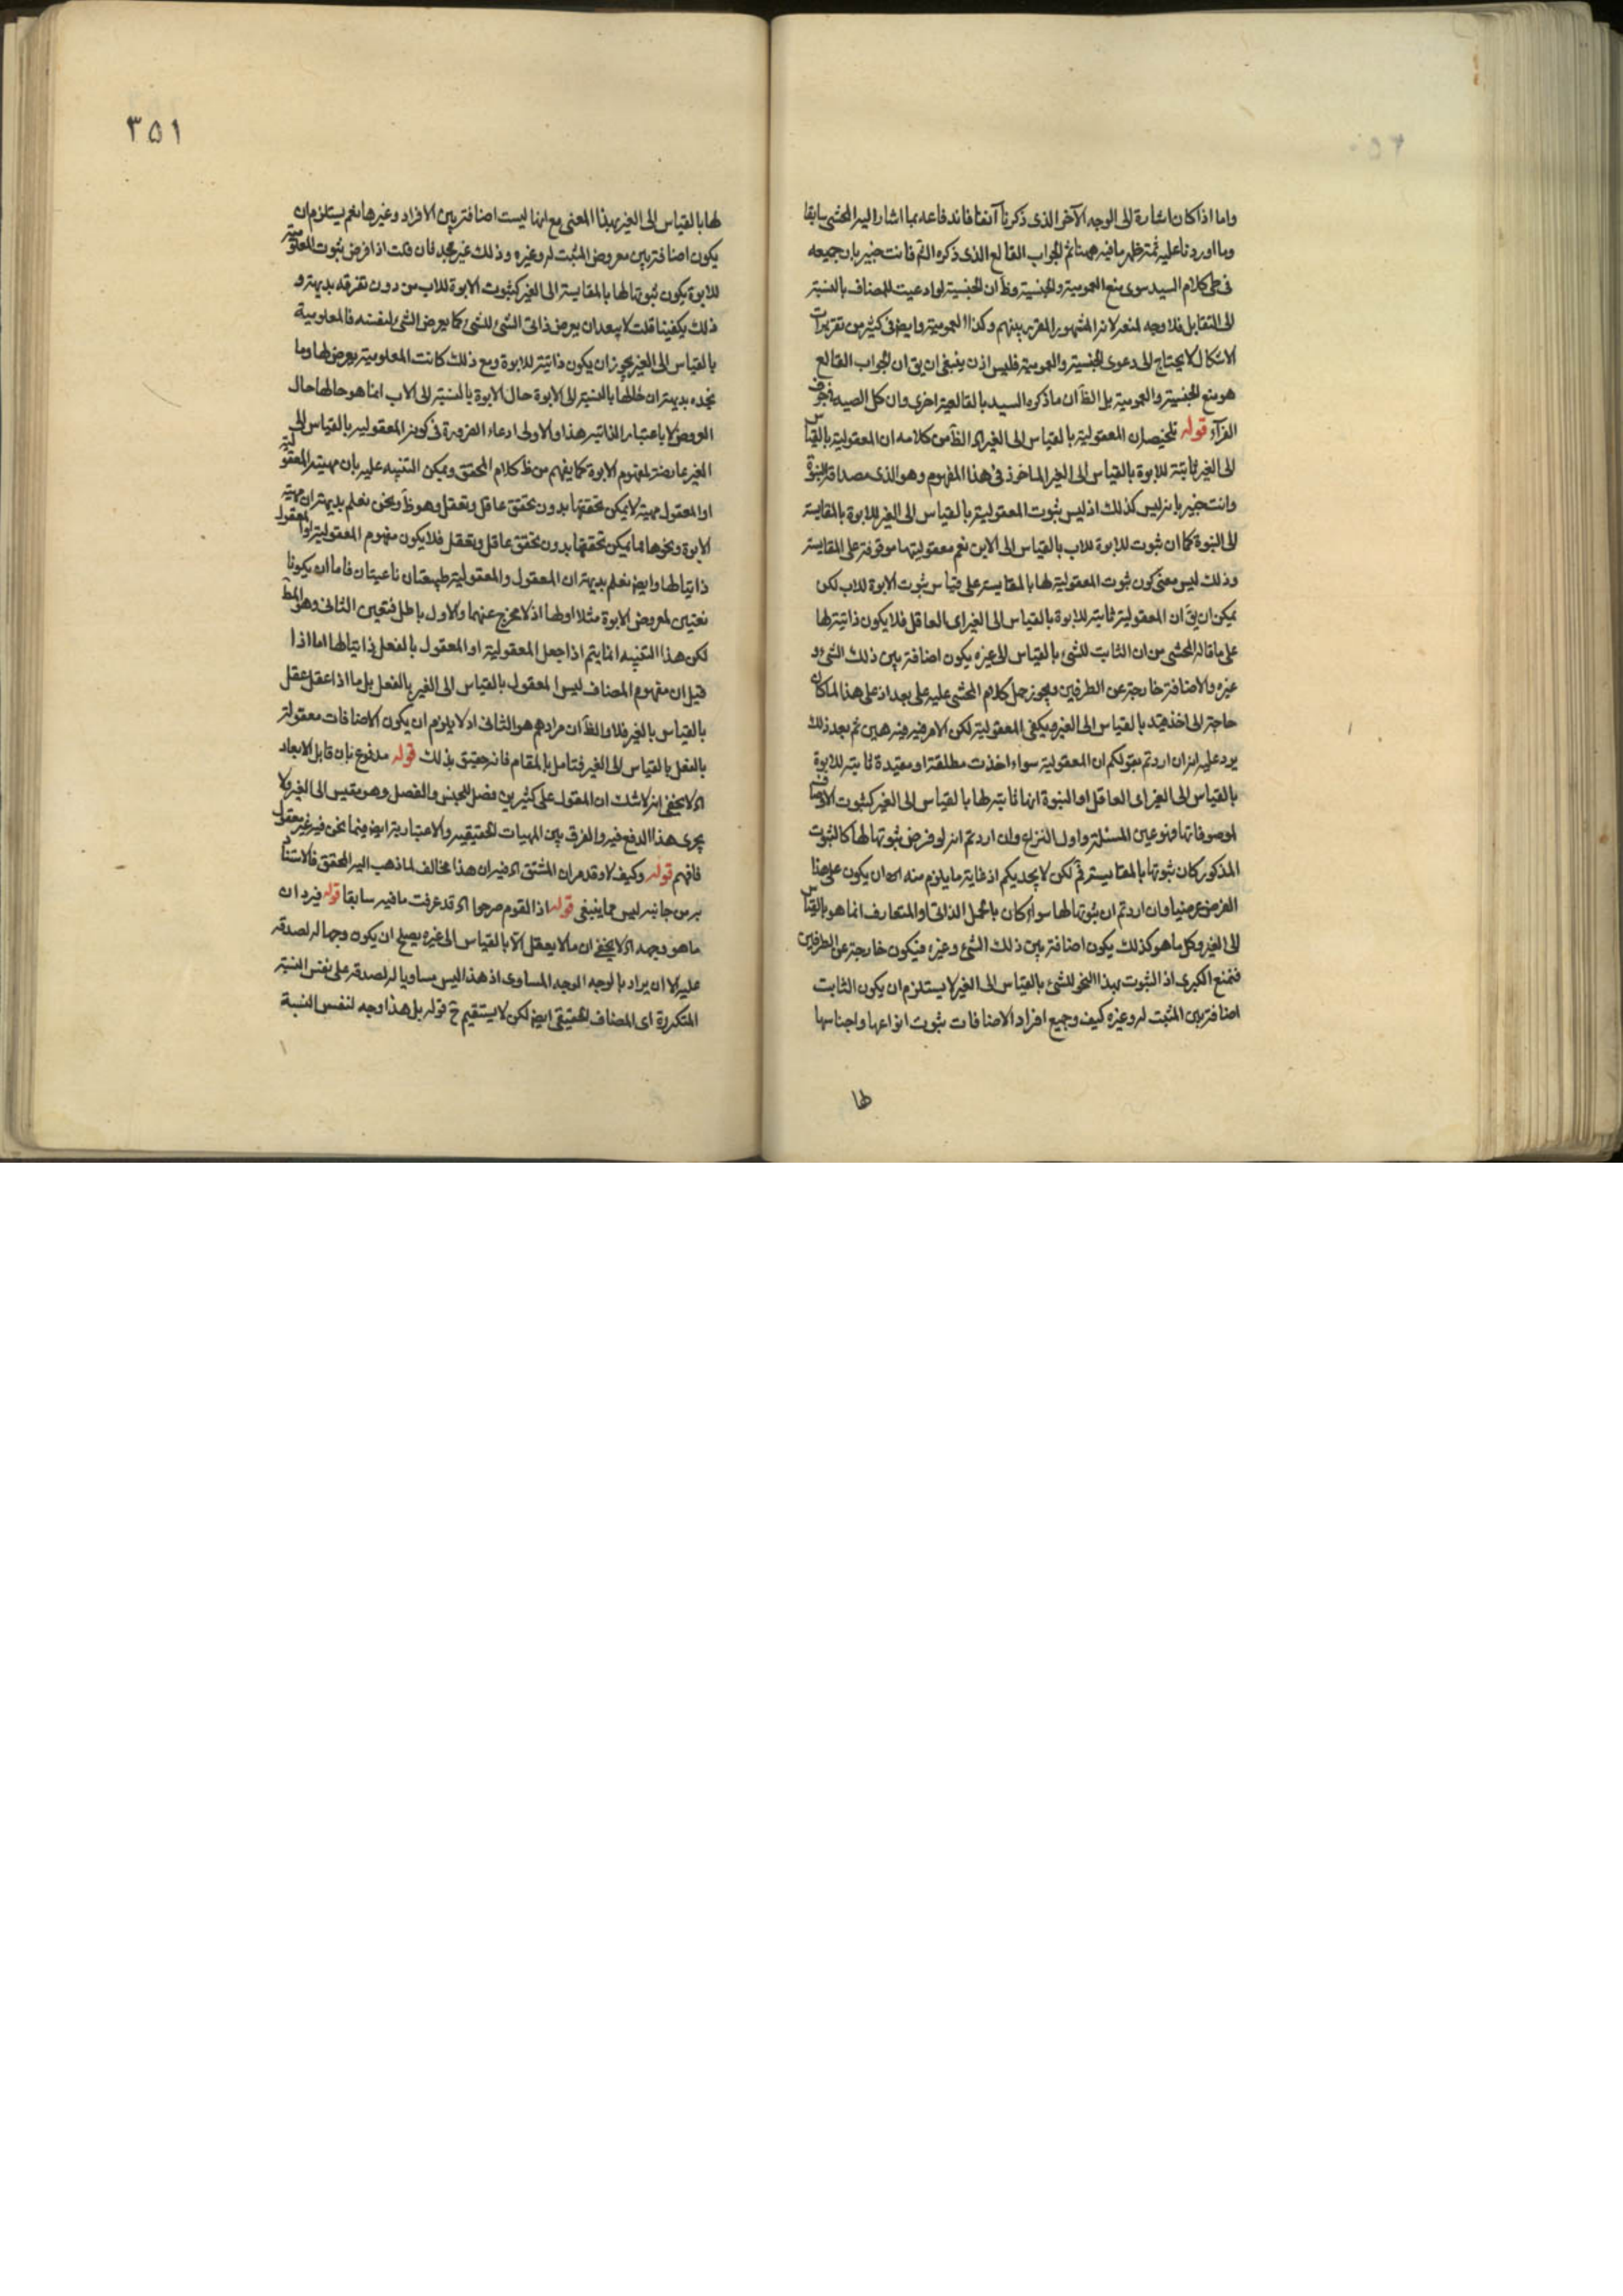 واما اذا كان اشارة الى الوجه الآخر الذى ذكرنا آنفا فاندفاعه بما اشار اليه المحشى سابقا
وما اوردنا عليه ثمة ظهر ما فيه ههنا ثم الجواب القالع الذى ذكره الشم فانت خبير بان جميعه
فى طى كلام السيد سوى منع العمومية والجنسية وظ ان الجنسية لو ادعيت للمضاف بالنسبة
الى التقابل فلا وجه لمنعه لانه المشهور المقرر بينهم وكذا العمومية وايض فى كثير من تقريرات
الاشكال لا يحتاج الى دعوى الجنسية والعمومية فليس اذن ينبغى ان يق ان الجواب القالع
هو منع الجنسية والعمومية بل الظ ان ما ذكره السيد بالقالعية احرى وان كل الصيد فى جوف
الفرآء قوله تلخيصه ان المعقولية بالقياس الى الغير اه الظ من كلامه ان المعقولية بالقياس
الى الغير ثابتة للابوة بالقياس الى الغير الماخوذ فى هذا المفهوم وهو الذى مصداقه البنوة
وانت خبير بانه ليس كذلك اذ ليس ثبوت المعقولية بالقياس الى الغير للابوة بالمقايسة
الى البنوة كما ان ثبوت للابوة للاب بالقياس الى الابن نعم معقوليتها موقوفة على المقايسة
وذلك ليس معنى كون ثبوت المعقولية لها بالمقايسة على قياس ثبوت الابوة للاب لكن
يمكن ان يق ان المعقولية ثابتة للابوة بالقياس الى الغير اى العاقل فلا يكون ذاتية لها
على ما قاله المحشى من ان الثابت للشئ بالقياس الى غيره يكون اضافة بين ذلك الشئ و
غيره والاضافة خارجة عن الطرفين ويجوز حمل كلام المحشى عليه على بعد اذ على هذا لا كان
حاجة الى اخذ قيد بالقياس الى الغير ويكفى المعقولية لكن الامر فيه هين ثم بعد ذلك
يرد عليه انه ان اردتم بقولكم ان المعقولية سواء اخذت مطلقة او مقيدة ثابتة للابوة
بالقياس الى الغير اى العاقل او البنوة انها ثابتة لها بالقياس الى الغير كثبوت الاوصاف
لموصوفاتها فهو عين المسئلة واول النزاع وان اردتم انه لو فرض ثبوتها لها كالثبوت
المذكور كان ثبوتها بالمقايسة فم لكن لا يجديكم اذ غاية ما يلزم منه ان يكون على هذا
الفرض عرضيا وان اردتم ان ثبوتها لها سواء كان بالحمل الذاتى او المتعارف انما هو بالقياس
الى الغير وكل ما هو كذلك يكون اضافة بين ذلك الشئ وغيره فيكون خارجة عن الطرفين
فنمنع الكبرى اذ الثبوت بهذا النحو للشئ بالقياس الى الغير لا يستلزم ان يكون الثابت
اضافة بين المثبت له وغيره كيف وجميع افراد الاضافات ثبوت انواعها واجناسها
لها
٣٥١
لها بالقياس الى الغير بهذا المعنى مع انها ليست اضافة بين الافراد وغيرها نعم يستلزم ان
يكون اضافة بين معروض المثبت له وغيره وذلك غير مجد فان قلت اذا فرض ثبوت المعلومية
للابوة يكون ثبوتها لها بالمقايسة الى الغير كثبوت الابوة للاب من دون تفرقه بديهة و
ذلك يكفينا قلت لا يبعد ان يعرض ذاتى الشئ للشئ كما يعرض الشئ لنفسه فالمعلومية
بالقياس الى الغير يجوز ان يكون ذاتية للابوة ومع ذلك كانت المعلومية يعرض لها وما
نجده بديهة ان حالها بالنسبة الى الابوة حال الابوة بالنسبة الى الاب انما هو حالها حال
العروض لا باعتبار الذاتية هذا والاولى ادعاء الضرورة فى كون المعقولية بالقياس الى
الغير عارضة لمفهوم الابوة كما يفهم من ظ كلام المحقق ويمكن التنبيه عليه بان مهية المعقولية
او المعقول مهية لا يمكن تحققها بدون تحقق عاقل وتعقل وهو ظ ونحن نعلم بديهة ان مهية
الابوة ونحوها مما يمكن تحققها بدون تحقق عاقل وتعقل فلا يكون مفهوم المعقولية او المعقول
ذاتيا لها وايض نعلم بديهة ان المعقول والمعقولية طبيعتان ناعيتان فاما ان يكونا
نعتين لمعروض الابوة مثلا او لها اذ لا مخرج عنهما والاول باطل فتعين الثانى وهو المط
لكن هذا التنبيه انما يتم اذا جعل المعقولية او المعقول بالفعل ذاتيا لها اما اذا
قيل ان مفهوم المضاف ليس المعقول بالقياس الى الغير بالفعل بل ما اذا عقل عقل
بالقياس بالغير فلا والظ ان مرادهم هو الثانى اذ لا يلزم ان يكون الاضافات معقولة
بالفعل بالقياس الى الغير فتامل بالمقام فانه حقيق بذلك قوله مدفوع بان قابل الابعاد
اه لا يخفى انه لا شك ان المقول على كثيرين فصل للجنس والفصل وهو مقيس الى الغير ولا
يجرى هذا الدفع فيه والفرق بين المهيات الحقيقية والاعتبارية ايض فيما نحن فيه غير معقول
فافهم قوله وكيف لا وقد مر ان المشتق اه فيه ان هذا مخالف لما ذهب اليه المحقق فالاستناد
به من جانبه ليس مما ينبغى قوله اذ القوم صرحوا اه قد عرفت ما فيه سابقا قوله فيرد ان
ما هو وجهه اه لا يخفى ان ما لا يعقل الا بالقياس الى غيره يصلح ان يكون وجها له لصدقه
عليه الا ان يراد بالوجه الوجه المساوى اذ هذا ليس مساويا له لصدقه على نفس النسبة
المتكررة اى المضاف الحقيقى ايض لكن لا يستقيم ح قوله بل هذا وجه لنفس النسبة